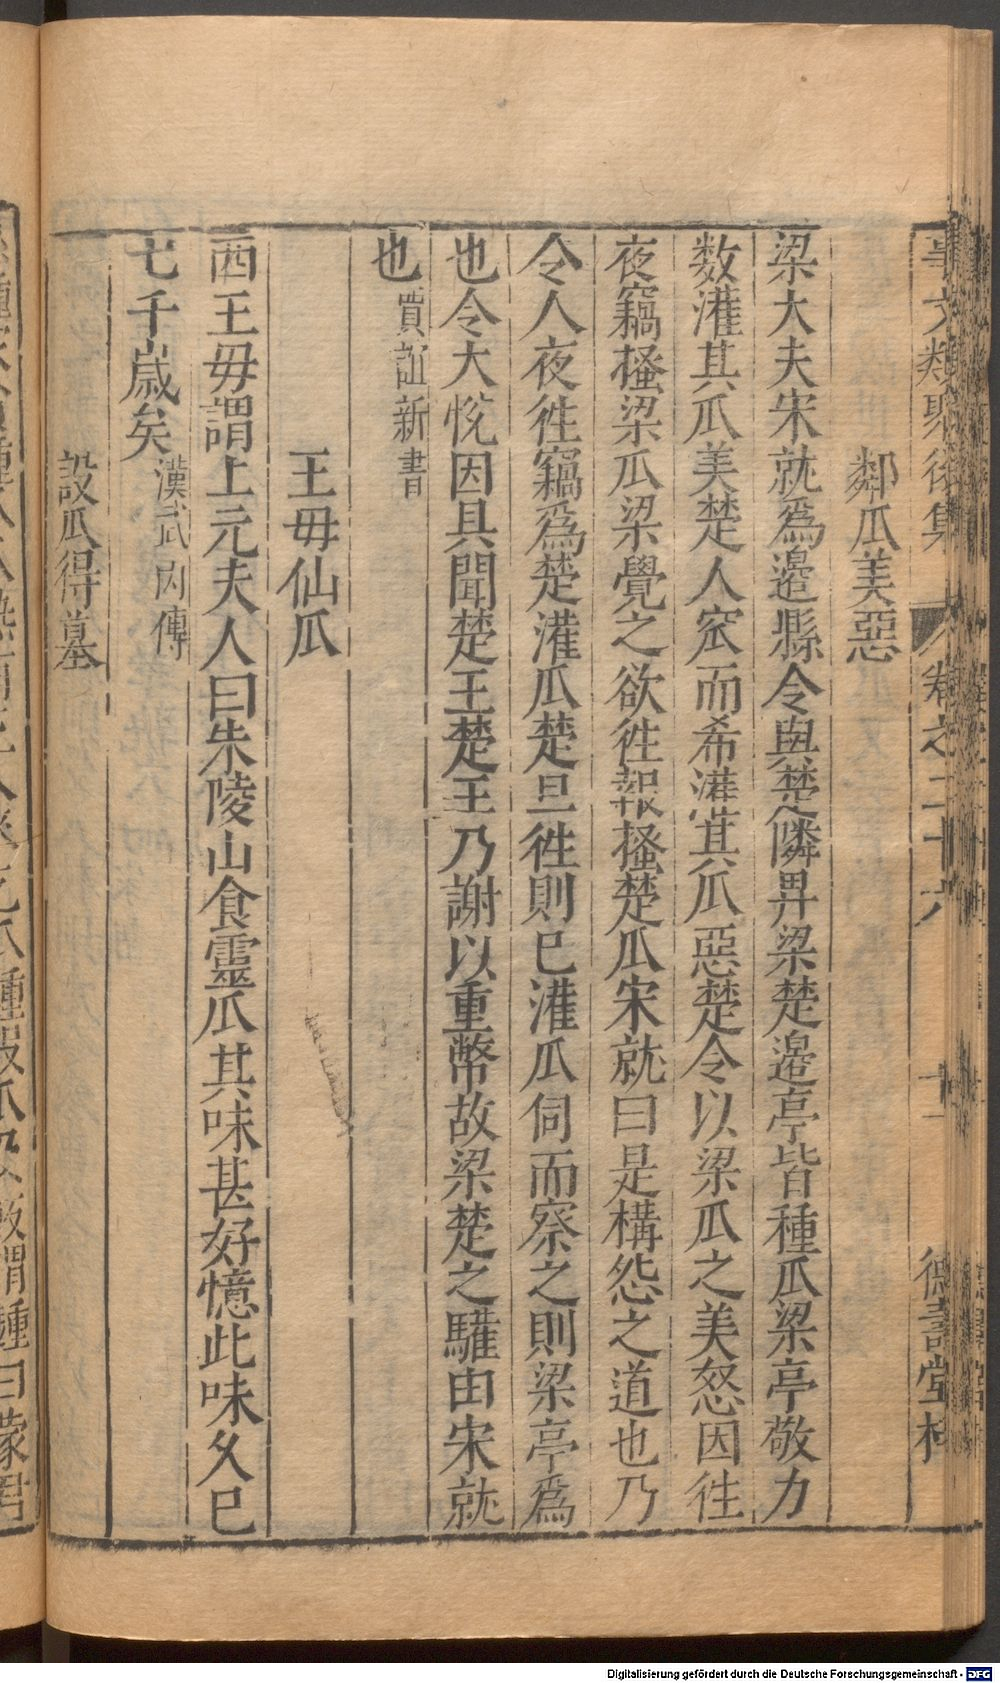 事文類聚後集 卷之二十六 十一 德壽堂梓
鄰瓜美惡
梁大夫宋就爲邉縣令與楚隣畀梁楚邉亭皆種瓜梁亭敬力
数灌其瓜美楚人窊而希灌其瓜惡楚令以梁瓜之美怒因徃
夜竊搔梁瓜梁覺之欲徃報搔楚瓜宋就曰是構怨之道也乃
令人夜徃竊爲楚灌瓜楚旦徃則已灌瓜伺而察之則梁亭爲
也令大恱因具聞楚王楚王乃謝以重幣故梁楚之驩由宋就
也賈誼新書
王母仙瓜
西王母謂上元夫人曰朱陵山食靈瓜其味甚好憶此味久已
七千歲矣漢武內傳
設瓜得墓
Digitalisierung gefördert durch die Deutsche Forschungsgemeinschaft - DFG